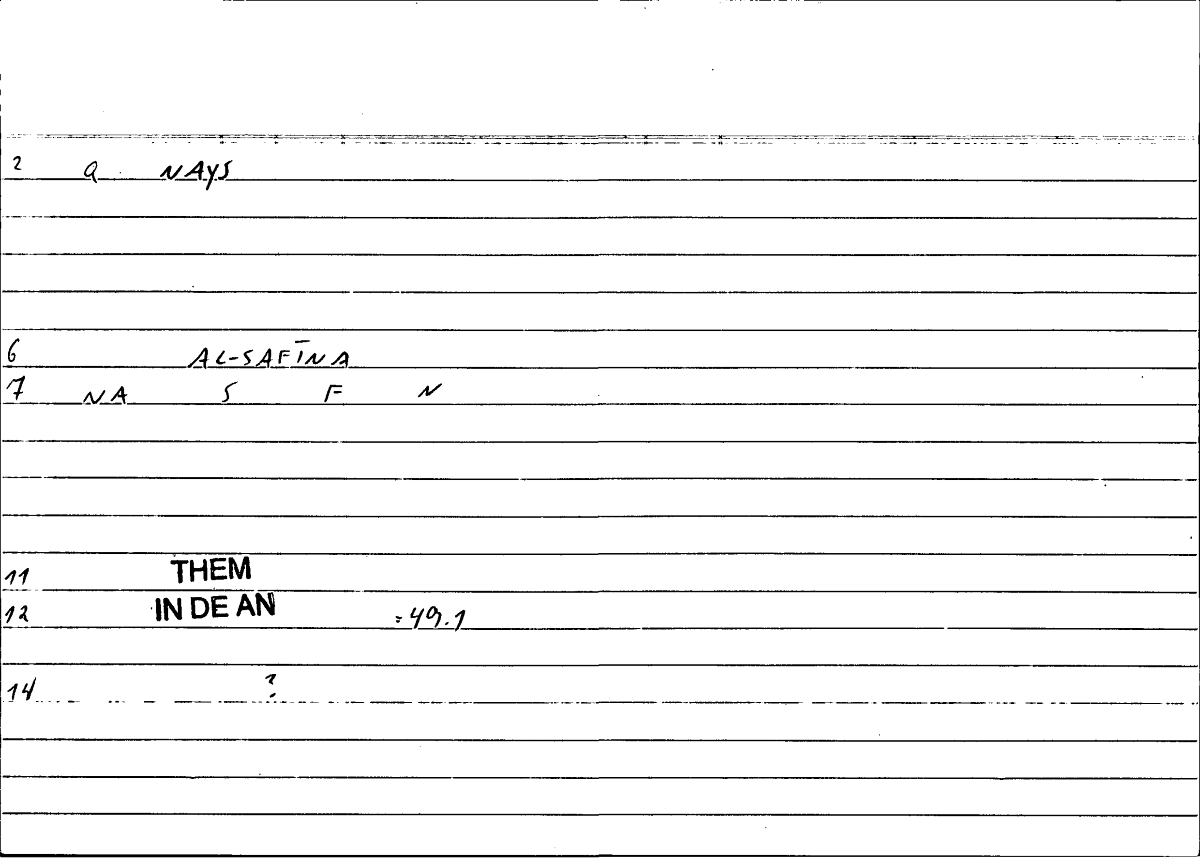 2 Q NAYS
6 AL-SAFĪNA
7 NA S F N
11 THEM
12 IN DE AN =49.1
14 ?